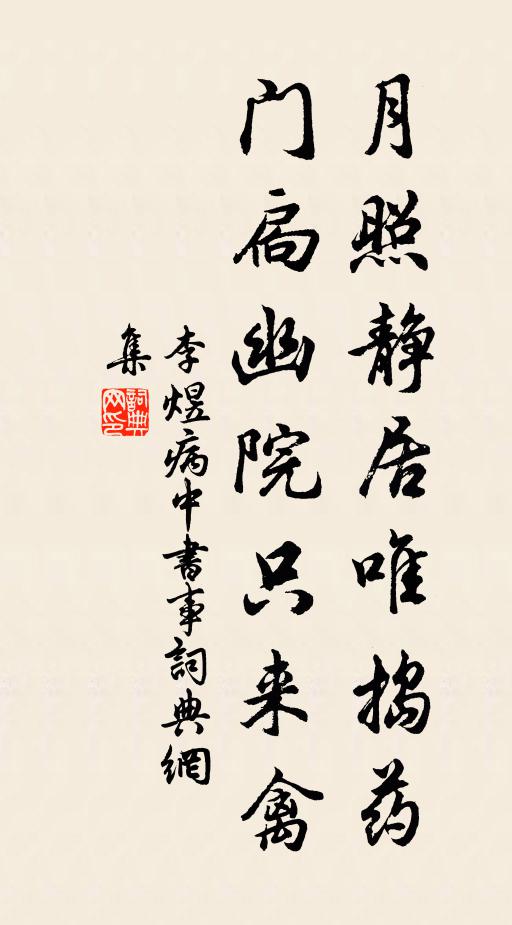 月照静居唯搗药
门扃幽院只来禽
李煜病中書事詞典網
集
詞典
网印